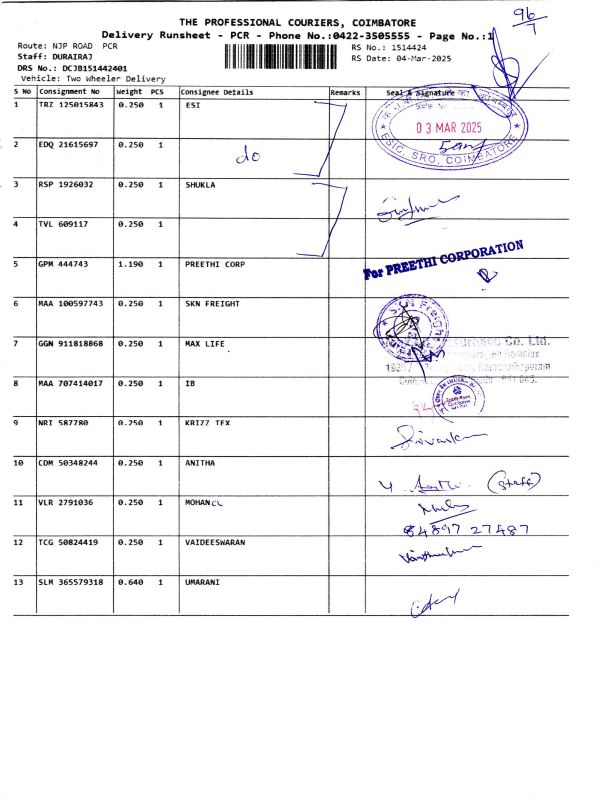 96/7
THE PROFESSIONAL COURIERS, COIMBATORE
Delivery Runsheet - PCR - Phone No.:0422-3505555 - Page No.:1
Route: NJP ROAD PCR
RS No.: 1514424
Staff: DURAIRAJ
RS Date: 04-Mar-2025
DRS No.: DCJB151442401
Vehicle: Two Wheeler Delivery
S No Consignment No Weight PCS Consignee Details Remarks Seal & Signature
1 TRZ 125015843 0.250 1 ESI
03 MAR 2025
ESIC, SRO, COIMBATORE
2 EDQ 21615697 0.250 1 do
3 RSP 1926032 0.250 1 SHUKLA
4 TVL 609117 0.250 1
5 GPM 444743 1.190 1 PREETHI CORP
For PREETHI CORPORATION
6 MAA 100597743 0.250 1 SKN FREIGHT
7 GGN 911818868 0.250 1 MAX LIFE
8 MAA 707414017 0.250 1 IB
9 NRI 587780 0.250 1 KRIZZ TEX
10 CDM 50348244 0.250 1 ANITHA
(Staff)
11 VLR 2791036 0.250 1 MOHAN CL
84897 27487
12 TCG 50824419 0.250 1 VAIDEESWARAN
13 SLM 365579318 0.640 1 UMARANI